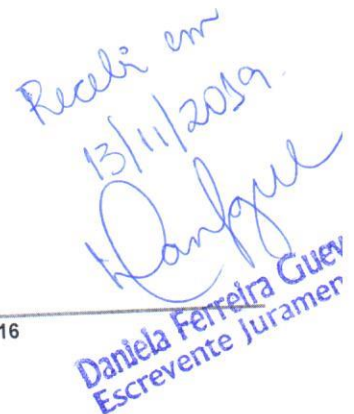 Recebi em
13/11/2019.
16
Daniela Ferreira Guev
Escrevente Juramen